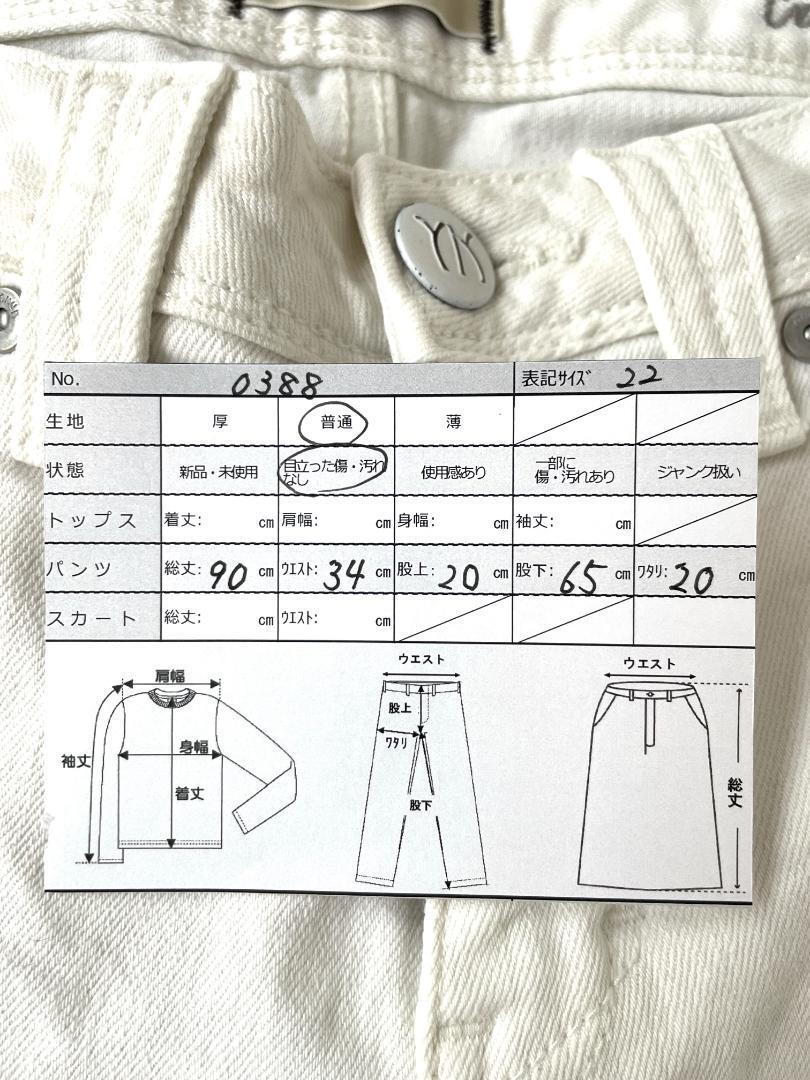 No. 0388 表記ｻｲｽﾞ 22
生地 厚 普通 薄
状態 新品・未使用 目立った傷・汚れなし 使用感あり 一部に傷・汚れあり ジャンク扱い
トップス 着丈: cm 肩幅: cm 身幅: cm 袖丈: cm
パンツ 総丈: 90 cm ｳｴｽﾄ: 34 cm 股上: 20 cm 股下: 65 cm ﾜﾀﾘ: 20 cm
スカート 総丈: cm ｳｴｽﾄ: cm
肩幅
袖丈
身幅
着丈
ウエスト
股上
ﾜﾀﾘ
股下
ウエスト
総丈